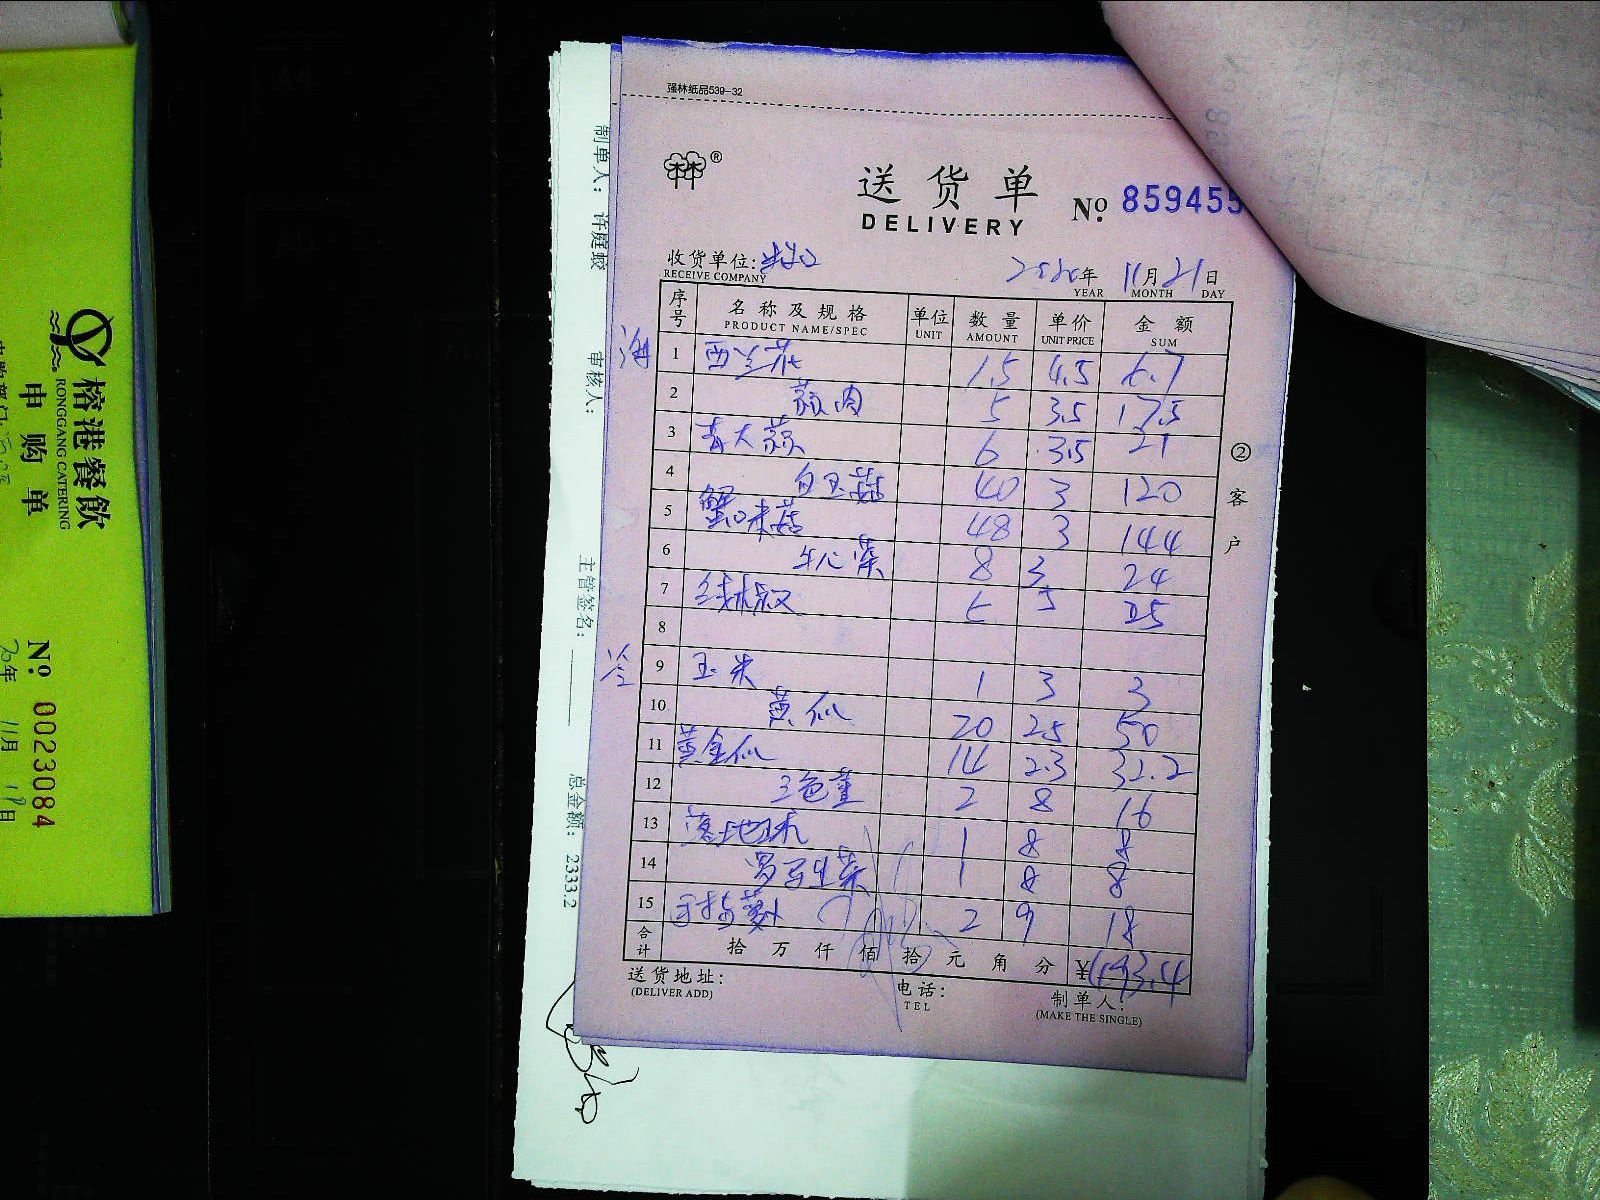 强林纸品539-32
®
送货单
DELIVERY
№ 859455
收货单位:
RECEIVE COMPANY
2020年 11月 21日
YEAR MONTH DAY
序号 名称及规格 单位 数量 单价 金额
PRODUCT NAME/SPEC UNIT AMOUNT UNIT PRICE SUM
海 1 西兰花 1.5 4.5 6.7
2 蒜肉 5 3.5 17.5
3 青大蒜 6 3.5 21
4 白玉菇 40 3 120
5 蟹味菇 48 3 144
6 牛心菜 8 3 24
7 线椒 5 5 25
8
冷 9 玉米 1 3 3
10 黄瓜 20 2.5 50
11 黄金瓜 14 2.3 32.2
12 三色堇 2 8 16
13 1 8 8
14 罗马生菜 1 8 8
15 手指萝卜 2 9 18
合计 拾 万 仟 佰 拾 元 角 分 ¥ 493.4
送货地址:
(DELIVER ADD)
电话:
TEL
制单人:
(MAKE THE SINGLE)
②客户
制单人: 许庭蛟
审核人:
主管签名:
总金额: 2333.2
榕港餐飲
RONGGANG CATERING
申购单
№ 0023084
20年 11月 19日